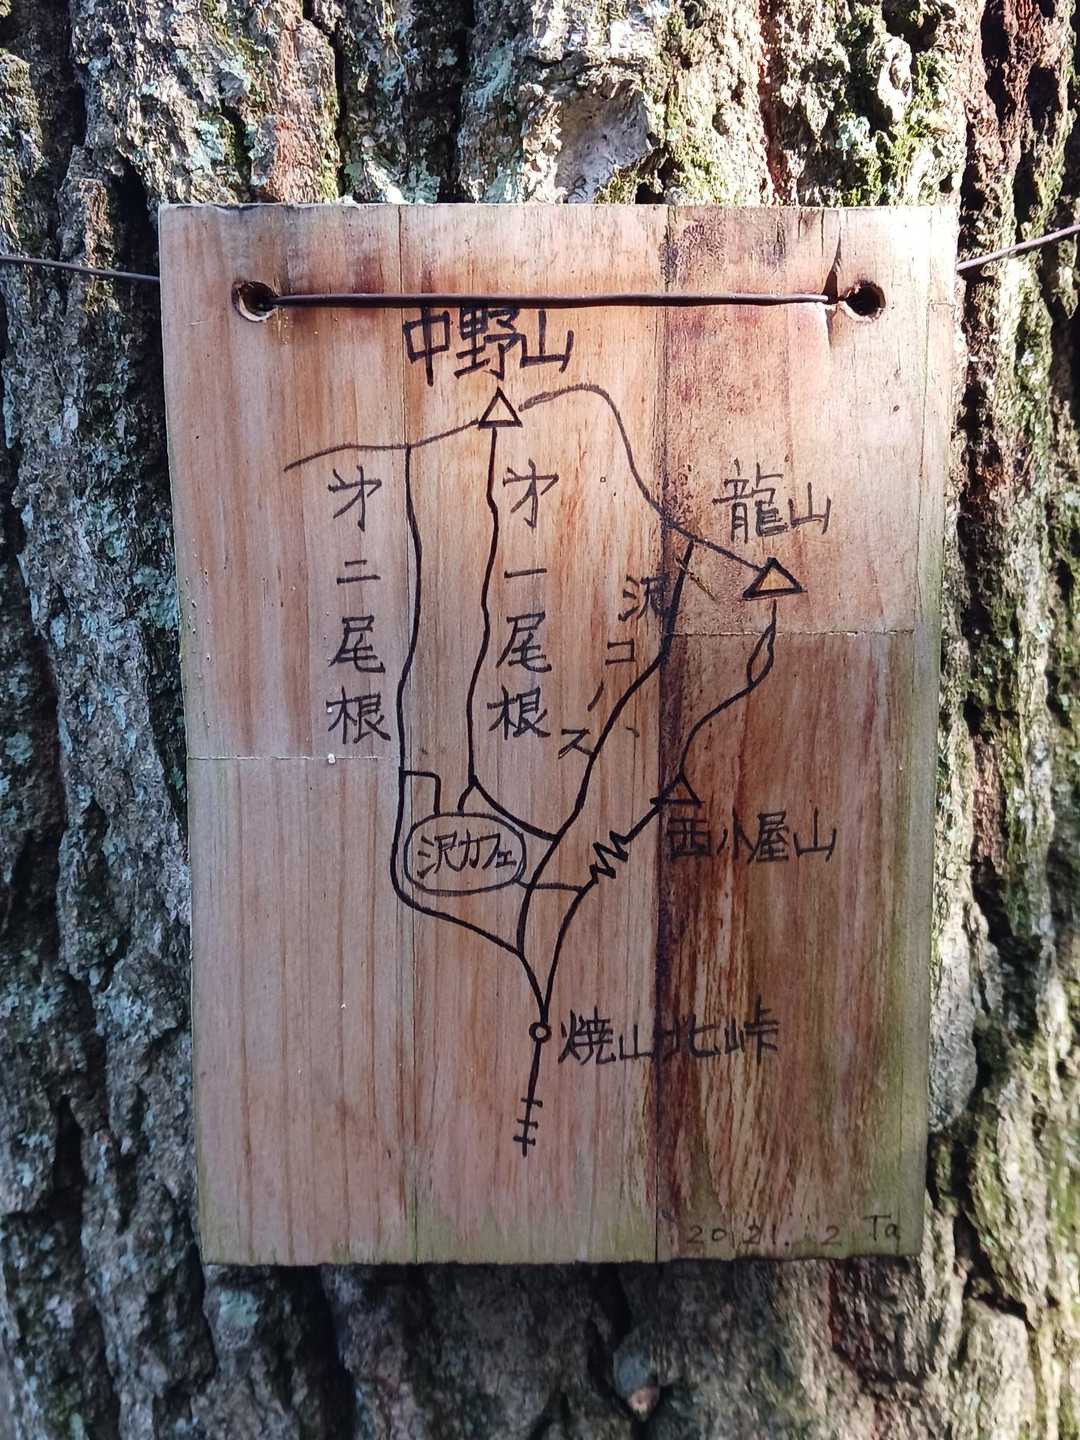 中野山
龍山
才二尾根
才一尾根
沢コース
沢カフェ
西小屋山
焼山北峠
2021. 2 Ta